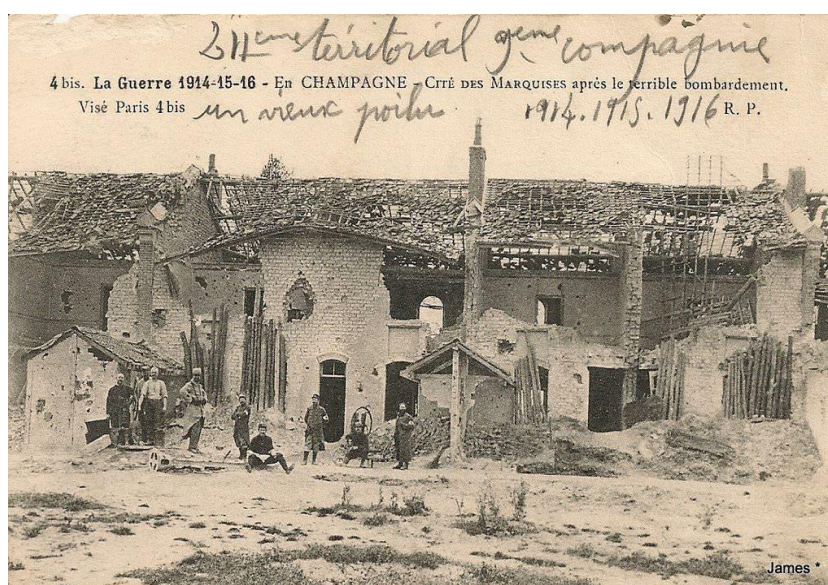 211ème térritorial 9ème compagnie
4 bis. La Guerre 1914-15-16 - En CHAMPAGNE - CITÉ DES MARQUISES après le terrible bombardement.
Visé Paris 4 bis un vieux poilu 1914.1915.1916 R. P.
James *